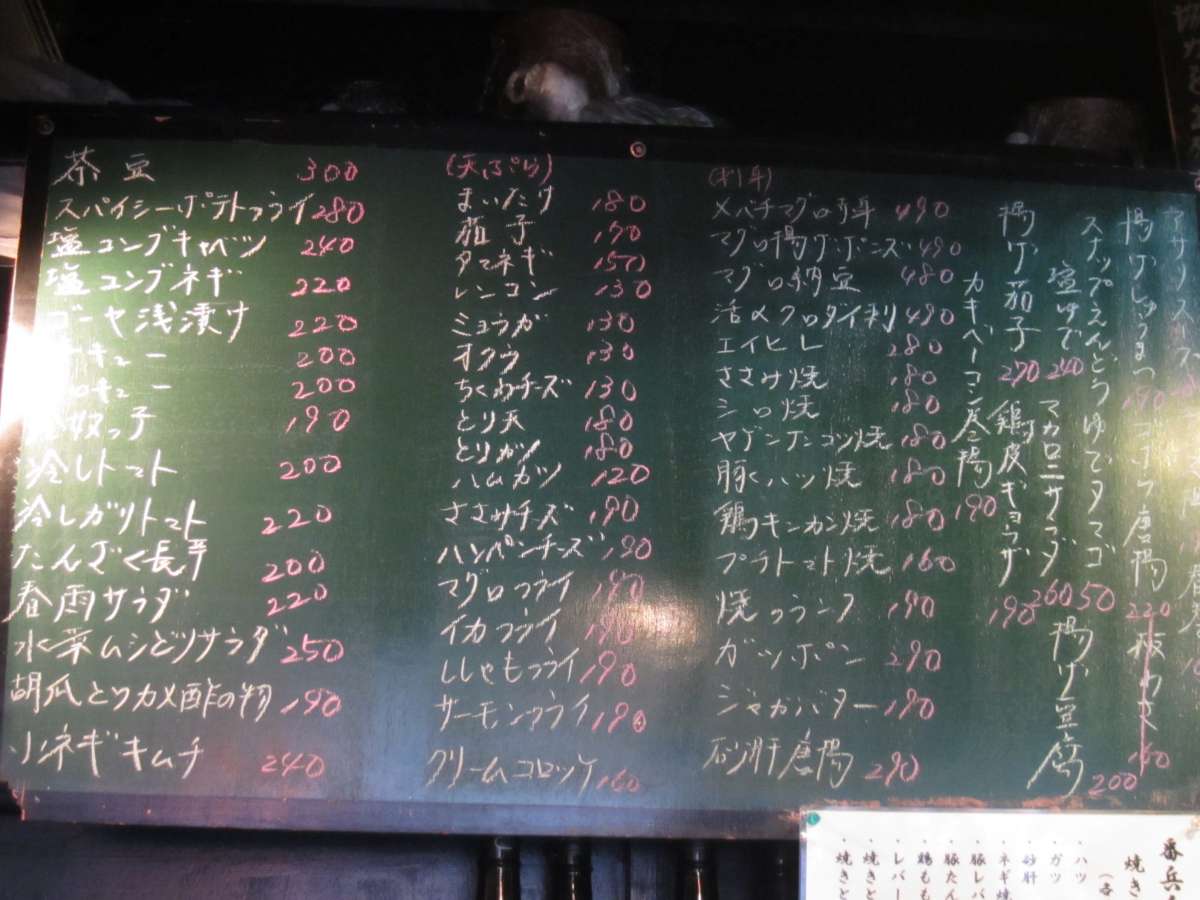 茶豆 300
スパイシーポテトフライ 280
塩コンブキャベツ 240
塩コンブネギ 220
ゴーヤ浅漬け 220
キュー 200
ロキュー 200
奴っ子 190
冷しトマト 200
冷しガリトマト 220
たんざく長芋 200
春雨サラダ 220
水菜ムシどりサラダ 250
胡瓜とワカメ酢の物 190
ネギキムチ 240
(天ぷら)
まいたけ 180
茄子 150
タマネギ 150
レンコン 130
ミョウガ 130
オクラ 130
ちくわチーズ 130
とり天 180
とりカツ 180
ハムカツ 120
ささみチーズ 190
ハンペンチーズ 190
マグロフライ 190
イカフライ 190
ししゃもフライ 190
サーモンフライ 190
クリームコロッケ 160
(刺身)
メバチマグロ刺身 490
マグロ揚げポンズ 490
マグロ納豆 480
活〆クロダイ刺 490
エイヒレ 280
ささみ焼 180
シロ焼 180
ヤゲンナンコツ焼 180
豚ハツ焼 180
鶏キンカン焼 180
プチトマト焼 160
焼フランク 190
ガツポン 290
ジャガバター 190
砂肝唐揚 290
揚げしゅうまい 190
ゴボウ唐揚 220
板わさ 160
スナップえんどう
ゆでタマゴ 50
塩ゆで 240
マカロニサラダ 260
揚げ豆腐 200
揚げ茄子 270
鶏皮ギョウザ 190
カキベーコン 190
番兵
焼き
・ハツ
・ガツ
・砂肝
・ネギ焼
・豚レバ
・豚たん
・鶏もも
・レバー
・焼きと
・焼きと